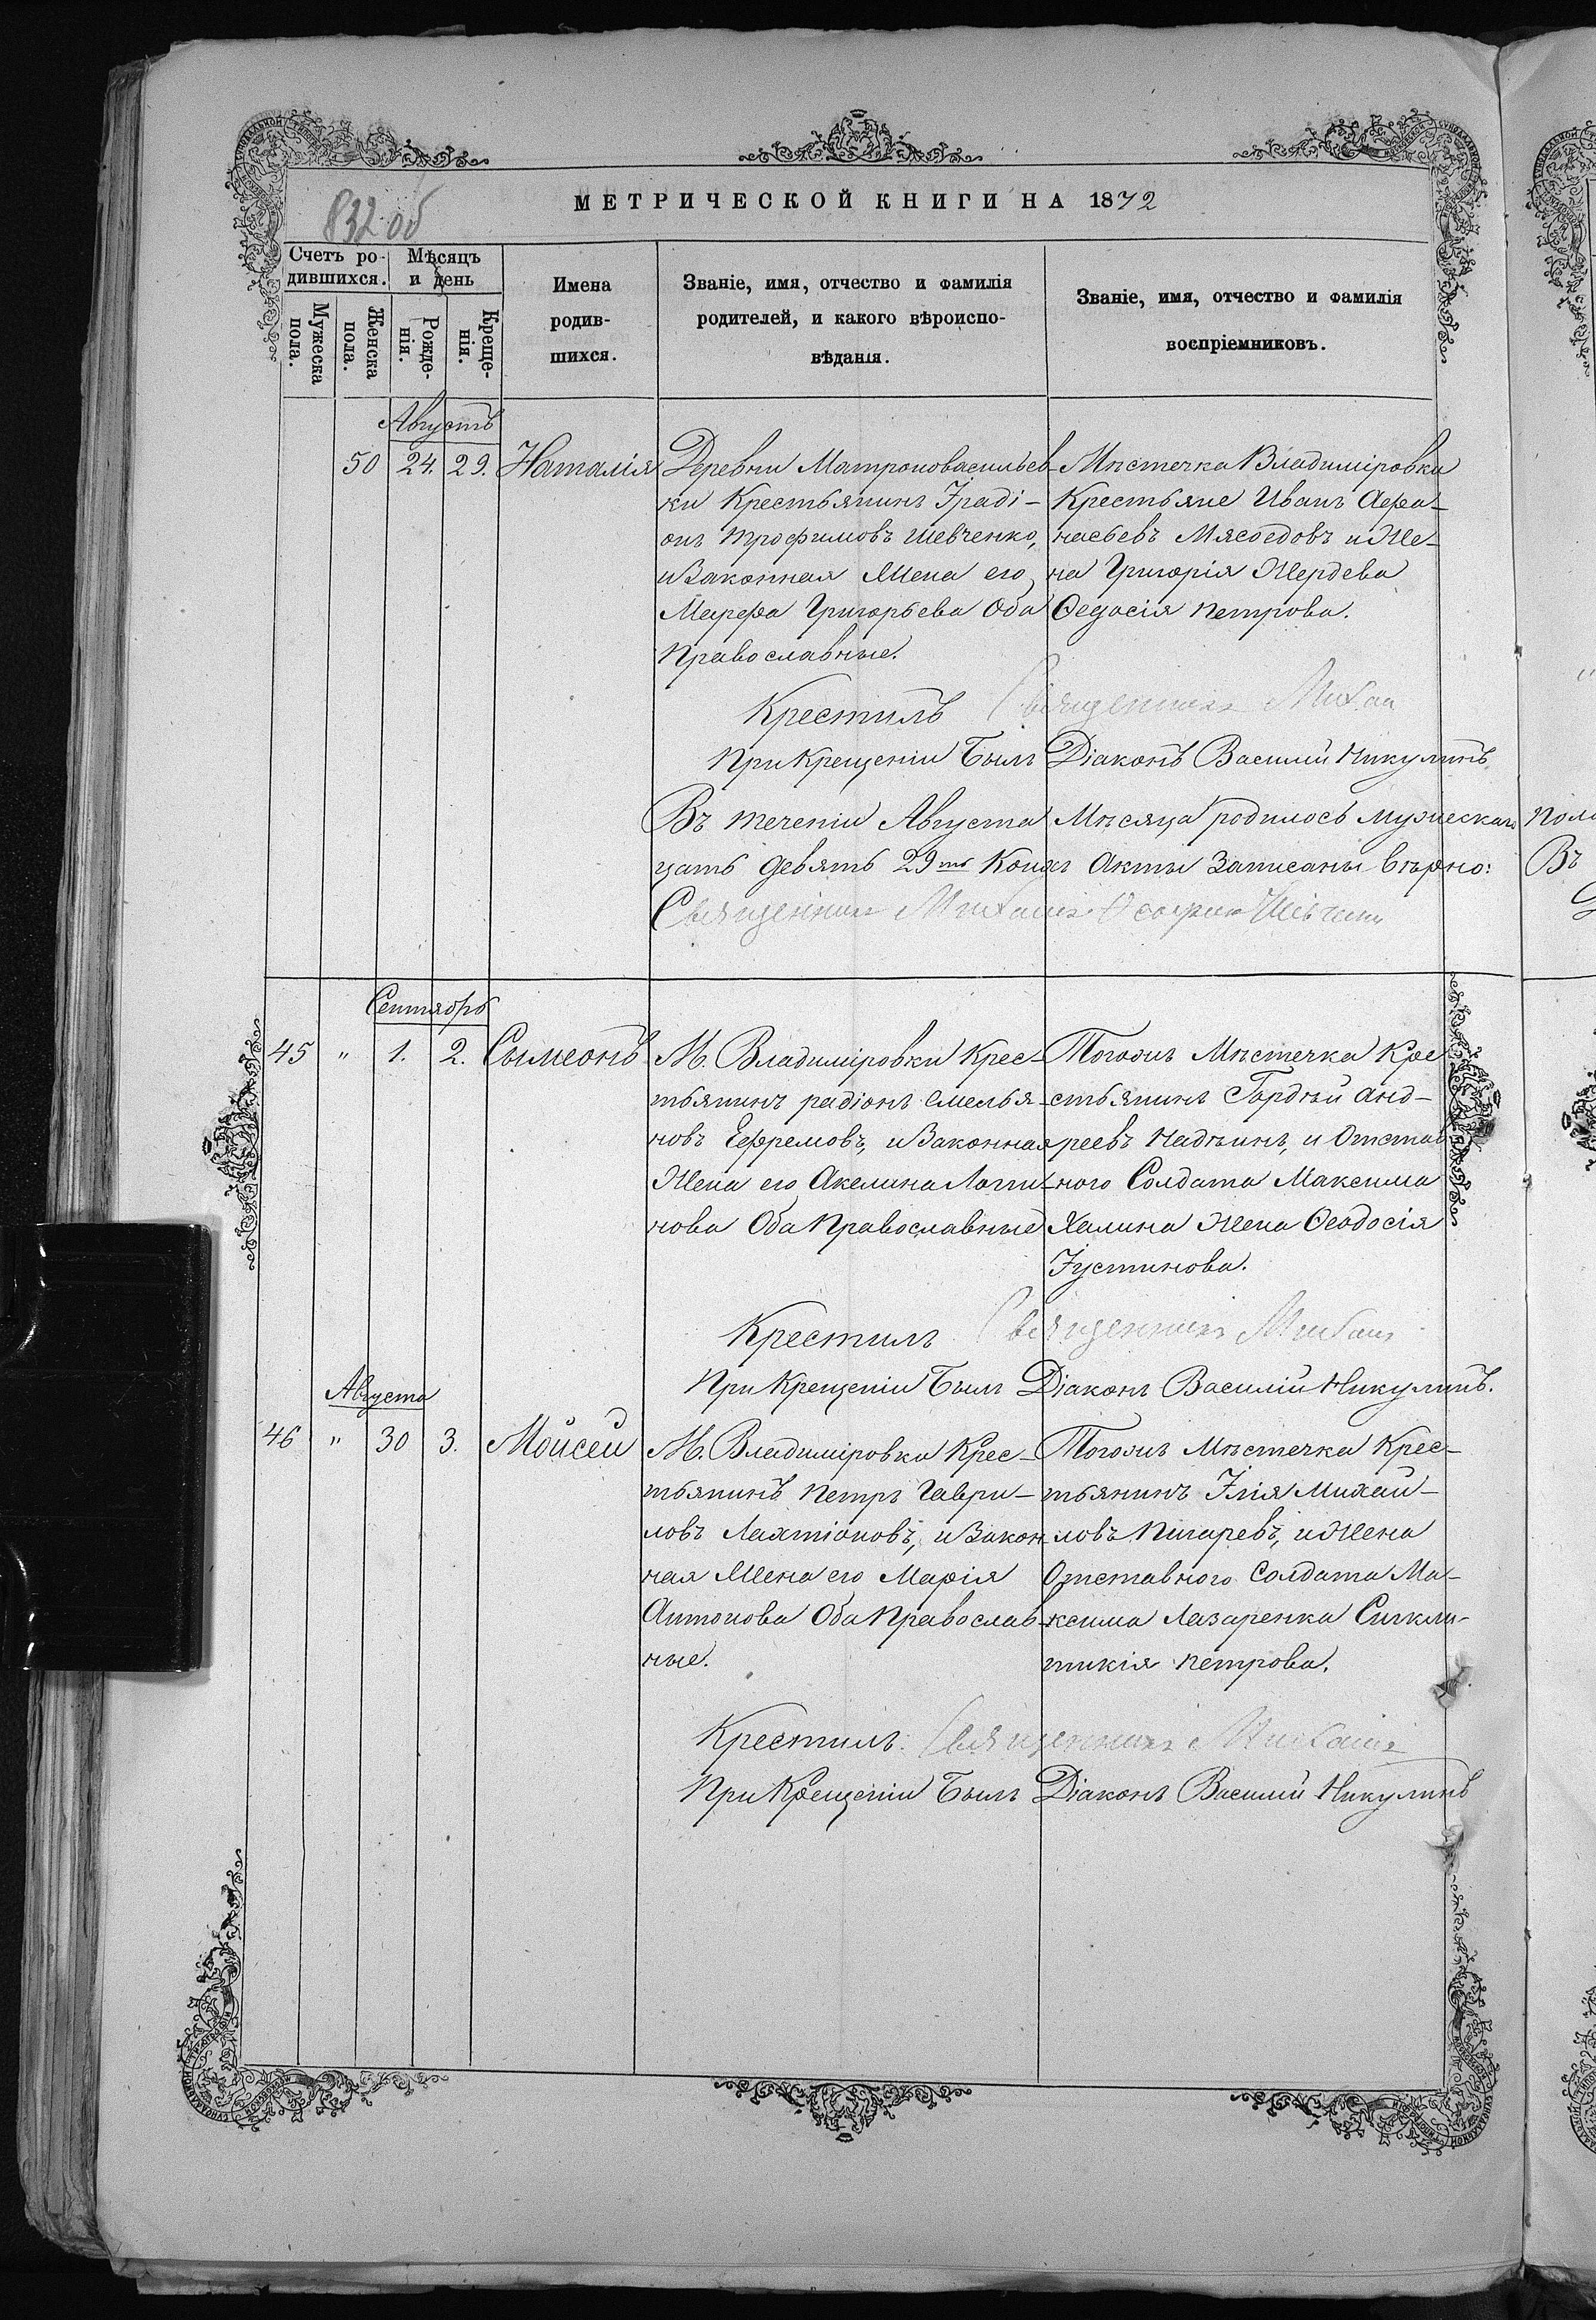 МЕТРИЧЕСКОЙ КНИГИ НА 1872
832 об
Счетъ ро-
дившихся.
Мѣсяцъ
и день
Мужеска
пола.
Женска
пола.
Рожде-
нія.
Креще-
нія.
Имена
родив-
шихся.
Званіе, имя, отчество и фамилія
родителей, и какого вѣроиспо-
вѣданія.
Званіе, имя, отчество и фамилія
воспріемниковъ.
Августъ
50 24. 29. Наталія
Деревни Матроновасильев-
ки Крестьянинъ Іраді-
онъ Трофимовъ Шевченко,
и Законная Жена его
Марфа Григорьева Оба
Православные.
Мѣстечка Владиміровки
Крестьяне Иванъ Афа-
насьевъ Мясоедовъ и Же-
на Григорія Жердева
Ѳедосія Петрова.
Крестилъ Священникъ Михаи
При Крещеніи Былъ Діаконъ Василій Никулинъ
Въ теченіи Августа Мѣсяца родилось мужескаго
цать девять 29ть Коихъ Акты Записаны вѣрно:
Священникъ Михаилъ
Сентябрь
45 " 1. 2. Сымеонъ
М. Владиміровки Крес-
тьянинъ радіонъ Емелья-
новъ Ефремовъ, и Законная
Жена его Акелина Логи-
нова Оба Православные
Тогожъ Мѣстечка Кре-
стьянинъ Гордѣй Анд-
реевъ Надѣинъ, и Отстав-
ного Солдата Максима
Халина Жена Ѳеодосія
Іустинова.
Крестилъ Священникъ Михаи
При Крещеніи Былъ Діаконъ Василій Никулинъ.
Августа
46 " 30 3. Мойсей
М. Владиміровки Крес-
тьянинъ Петръ Гаври-
ловъ Лахтіоновъ, и Закон-
ная Жена его Марія
Антонова Оба Православ-
ные.
Тогожъ Мѣстечка Крес-
тьянинъ Ілія Михай-
ловъ Пигаревъ, и Жена
Отставного Солдата Ма-
ксима Лазаренка Сигкли-
тикія Петрова.
Крестилъ Священникъ Михаилъ
При Крещеніи Былъ Діаконъ Василій Никулинъ
Въ